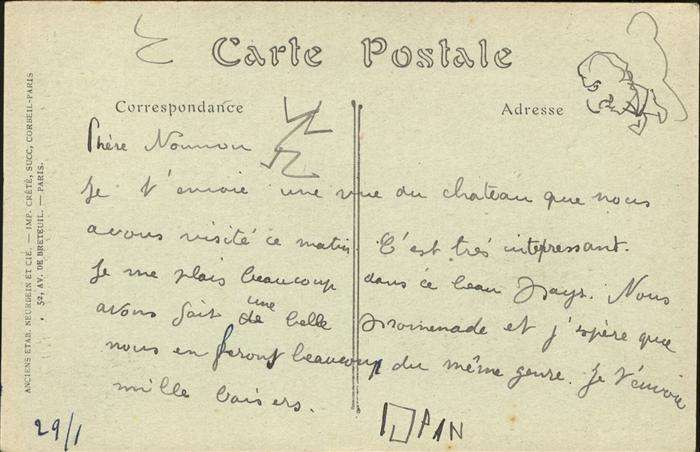 Carte Postale
Correspondance
Adresse
Chère Nounou
Je t'envoie une vue du chateau que nous
avons visité ce matin. C'est très intéressant.
Je me plais beaucoup dans ce beau pays. Nous
avons fait une belle promenade et j'espère que
nous en feront beaucoup du même genre. Je t'envoie
mille baisers.
29/1
ANCIENS ETAB. NEURDEIN ET CIE. — IMP. CRÉTÉ, SUCC, CORBEIL-PARIS
52, AV. DE BRETEUIL. — PARIS.